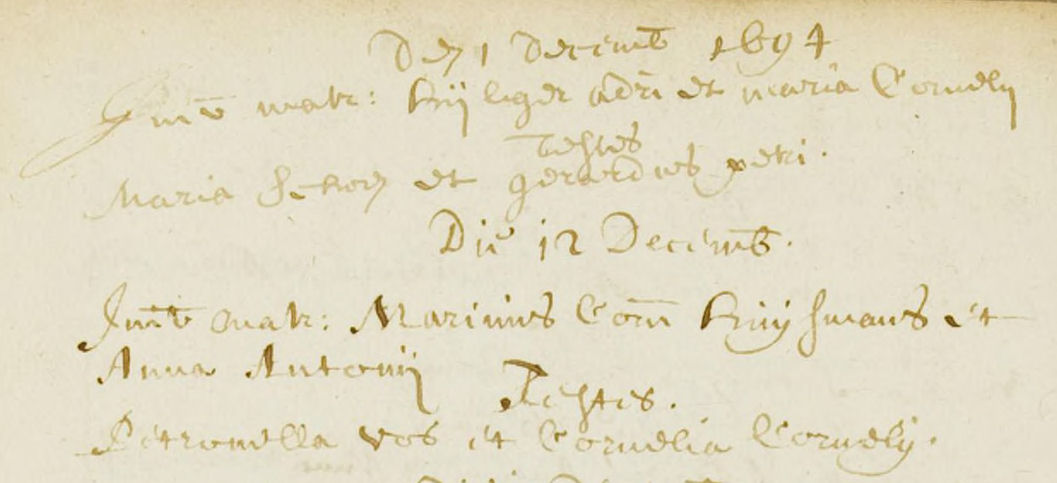 Den 1 Decemb 1694
Junt matr: huijbreger Adri et maria Cornelij
testes
Maria Schoen et gerardus petri.
Die 12 Decemb.
Junt matr: Marinus Corn huijsmans et
Anna Antonij
Testes.
Petronella Vos et Cornelia Cornelij.